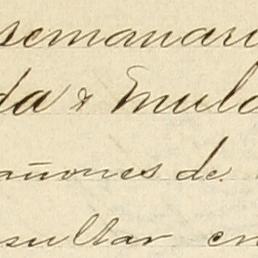 semanari
da & mula
añones de
sultar en